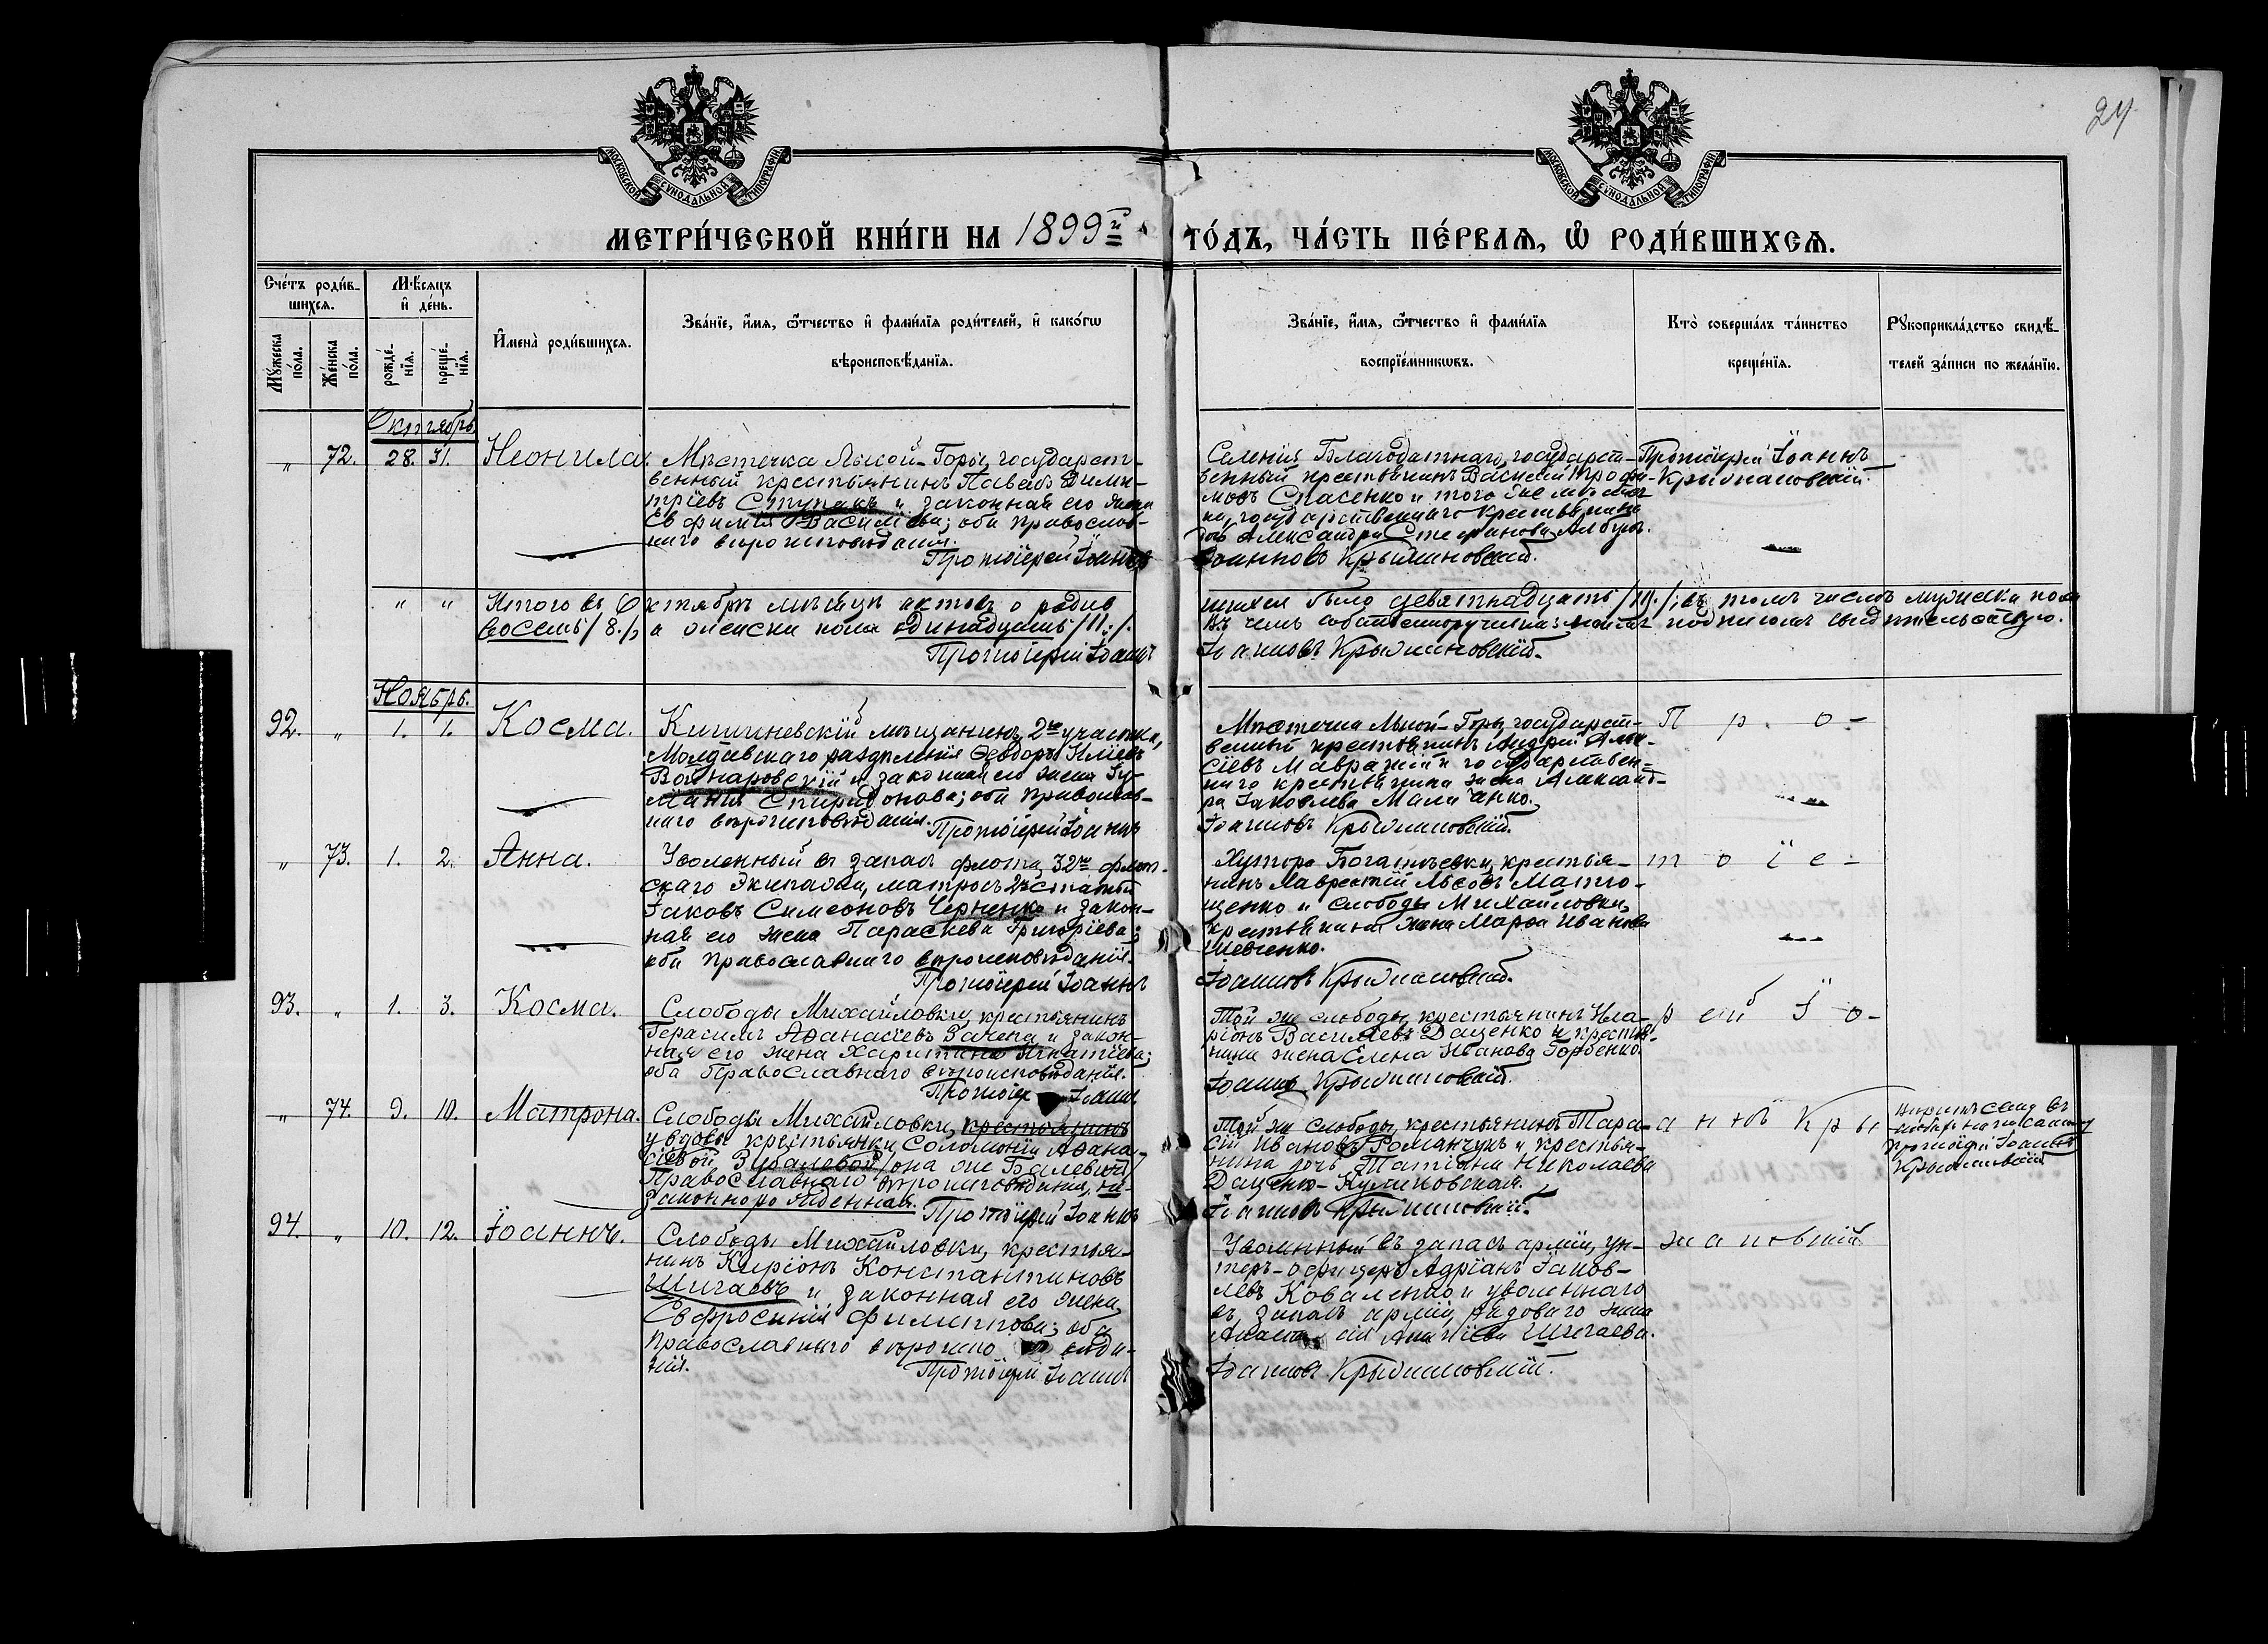 24
МОСКОВСКОЙ СѴНОДАЛЬНОЙ ТИПОГРАФІИ
МОСКОВСКОЙ СѴНОДАЛЬНОЙ ТИПОГРАФІИ
МЕТРИ́ЧЕСКОЙ КНИ́ГИ НА 1899й ГО́ДЪ, ЧА́СТЬ ПЕ́РВАЯ, Ѽ РОДИ́ВШИХСЯ.
Сче́тъ роди́в-
шихся.
Мꙋ́жеска по́ла.
Же́нска по́ла.
Мѣ́сяцъ
и҆ де́нь.
рожде́-
нїя.
креще́-
нїя.
И҆мена̀ роди́вшихся.
Зва́нїе, и҆́мя, ѻ҆́тчество и҆ фами́лїя роди́телей, и҆ како́гѡ
вѣроисповѣ́данїя.
Зва́нїе, и҆́мя, ѻ҆́тчество и҆ фами́лїя
воспрїе́мникѡвъ.
Кто̀ соверша́лъ та́инство
креще́нїя.
Рꙋкоприкла́дство свидѣ́-
телей за́писи по жела́нїю.
Октябрь
" 72. 28. 31. Неонила.
Мѣстечка Лысой-Горы, государст-
венный крестьянинъ Павелъ Дими-
тріевъ Ступакъ и законная его жена
Евфимія Васильева; оба православ-
наго вѣроисповѣданія.
Протоіерей Іоаннъ
Селенія Благодатнаго, государст-
венный крестьянинъ Василій Трофи-
мовъ Спасенко и того же мѣстеч-
ка, государственнаго крестьянина
дочь Александра Стефанова
Іоанновъ Крыжановскій.
Протоіерей Іоаннъ
Крыжановскій.
" " Итого въ Октябрѣ мѣсяцѣ актовъ о родив
шихся было девятнадцать /19./, въ томъ числѣ мужеска пола
восемь /8./, а женска пола одинадцать /11./.
Въ чемъ собственноручнымъ моимъ подписомъ свидѣтельствую.
Протоіерей Іоаннъ
Іоанновъ Крыжановскій.
Ноябрь.
92. " 1. 1. Косма.
Кишиневскій мѣщанинъ, 2го участка,
Молдавскаго раздѣленія Ѳеодоръ Иліевъ
Войнаровскій и законная его жена Іу-
Спиридонова; оба православ-
наго вѣроисповѣданія.
Протоіерей Іоаннъ
Мѣстечка Лысой-Горы, государст-
венный крестьянинъ Андрей Алек-
сіевъ и государствен-
наго крестьянина жена Александ-
ра Іаковлева
Іоанновъ Крыжановскій.
П р о-
" 73. 1. 2. Анна.
Уволенный въ запасъ флота, 32го флот-
скаго Экипажа, матросъ 2й статьи
Іаковъ Симеоновъ Черненко и закон-
ная его жена Параскева Григоріева;
оба православнаго вѣроисповѣданія.
Протоіерей Іоаннъ
Хутора Богатыревки, крестья-
нинъ Лаврентій Львовъ Матю-
щенко и слободы Михайловки,
крестьянина жена Марѳа Иванова
Шевченко.
Іоанновъ Крыжановскій.
т о і е-
93. " 1. 3. Косма.
Слободы Михайловки, крестьянинъ
Герасимъ Аѳанасіевъ Зачепа и закон-
ная его жена Харитина Игнатіева;
оба Православнаго вѣроисповѣданія.
Протоіер Іоаннъ
Той же слободы, крестьянинъ Ила-
ріонъ Василіевъ Даценко и крестья-
нина жена Елена Иванова Горбенко.
Іоанновъ Крыжановскій.
р ей І о-
" 74. 9. 10. Матрона.
Слободы Михайловки, крестьянинъ
у вдовы крестьянки Соломоніи Аѳана-
сіевой Зубалевой /она же Балевичъ/
Православнаго вѣроисповѣданія, не-
законнорожденная.
Протоіерей Іоаннъ
Той же слободы, крестьянинъ Тара-
сій Ивановъ Романчукъ и крестья-
нина дочь Татіана Николаева
Даценко-Куликовская.
Іоанновъ Крыжановскій.
а ннъ Кры
Протоіерей Іоаннъ
Крыжановскій
94. " 10. 12. Іоаннъ.
Слободы Михайловки, крестья-
нинъ Киріонъ Константиновъ
Шигаевъ и законная его жена
Евфросинія Филиппова; оба
православнаго вѣроиспо вѣда-
нія.
Протоіерей Іоаннъ
Уволенный въ запасъ арміи, ун-
теръ-офицеръ Адріанъ Іаков-
левъ Коваленко и уволеннаго
въ запасъ арміи, рядоваго жена
Анаста сія Шигаева.
Іоанновъ Крыжановскій.
жановскій